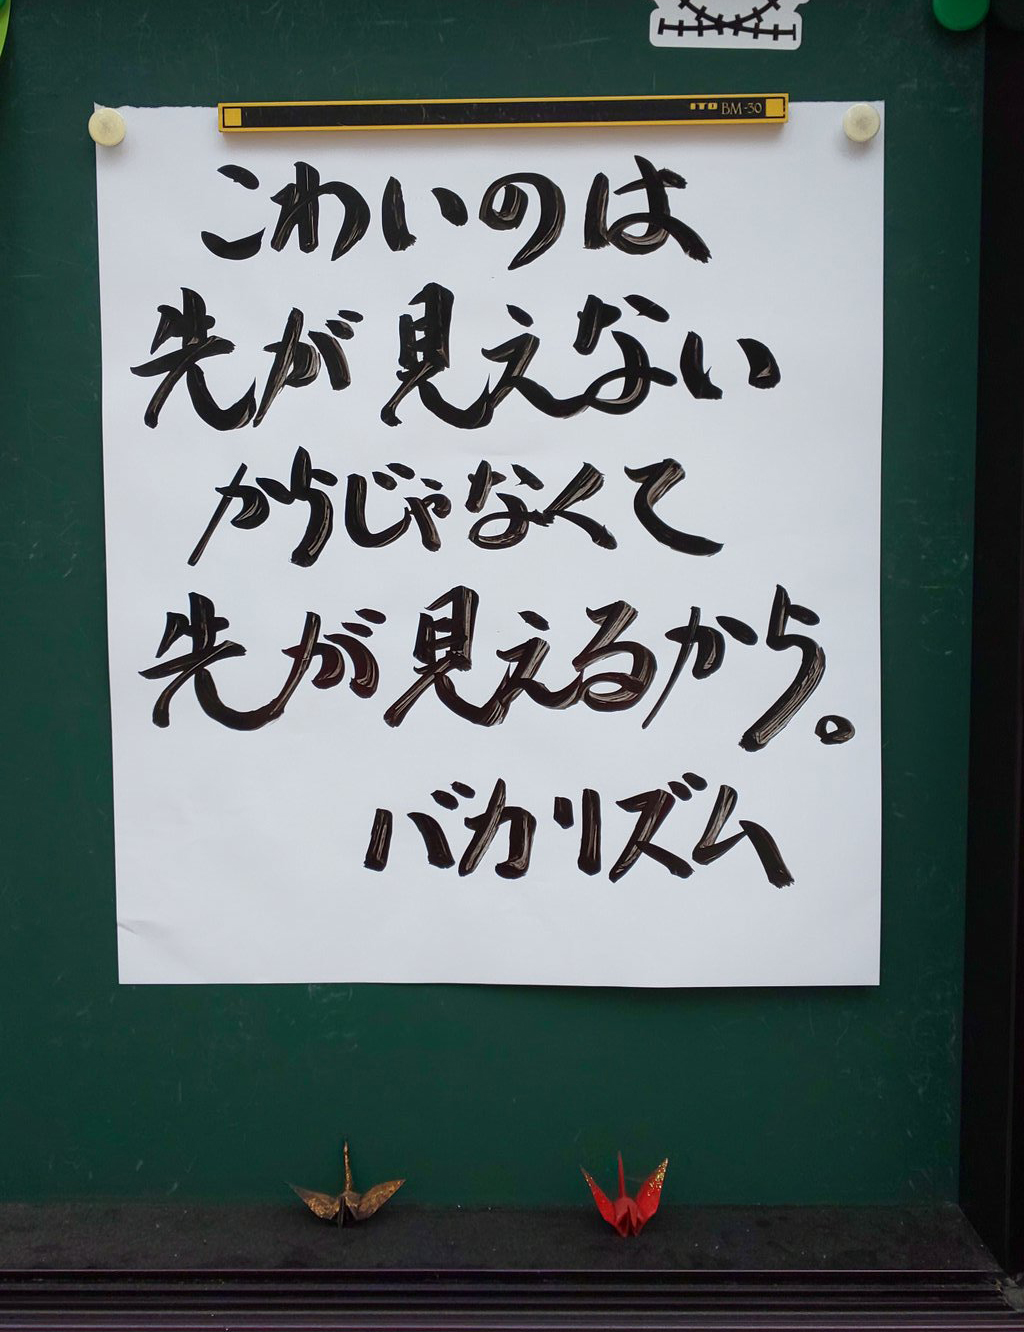 ITO BM-30
こわいのは
先が見えない
からじゃなくて
先が見えるから。
バカリズム